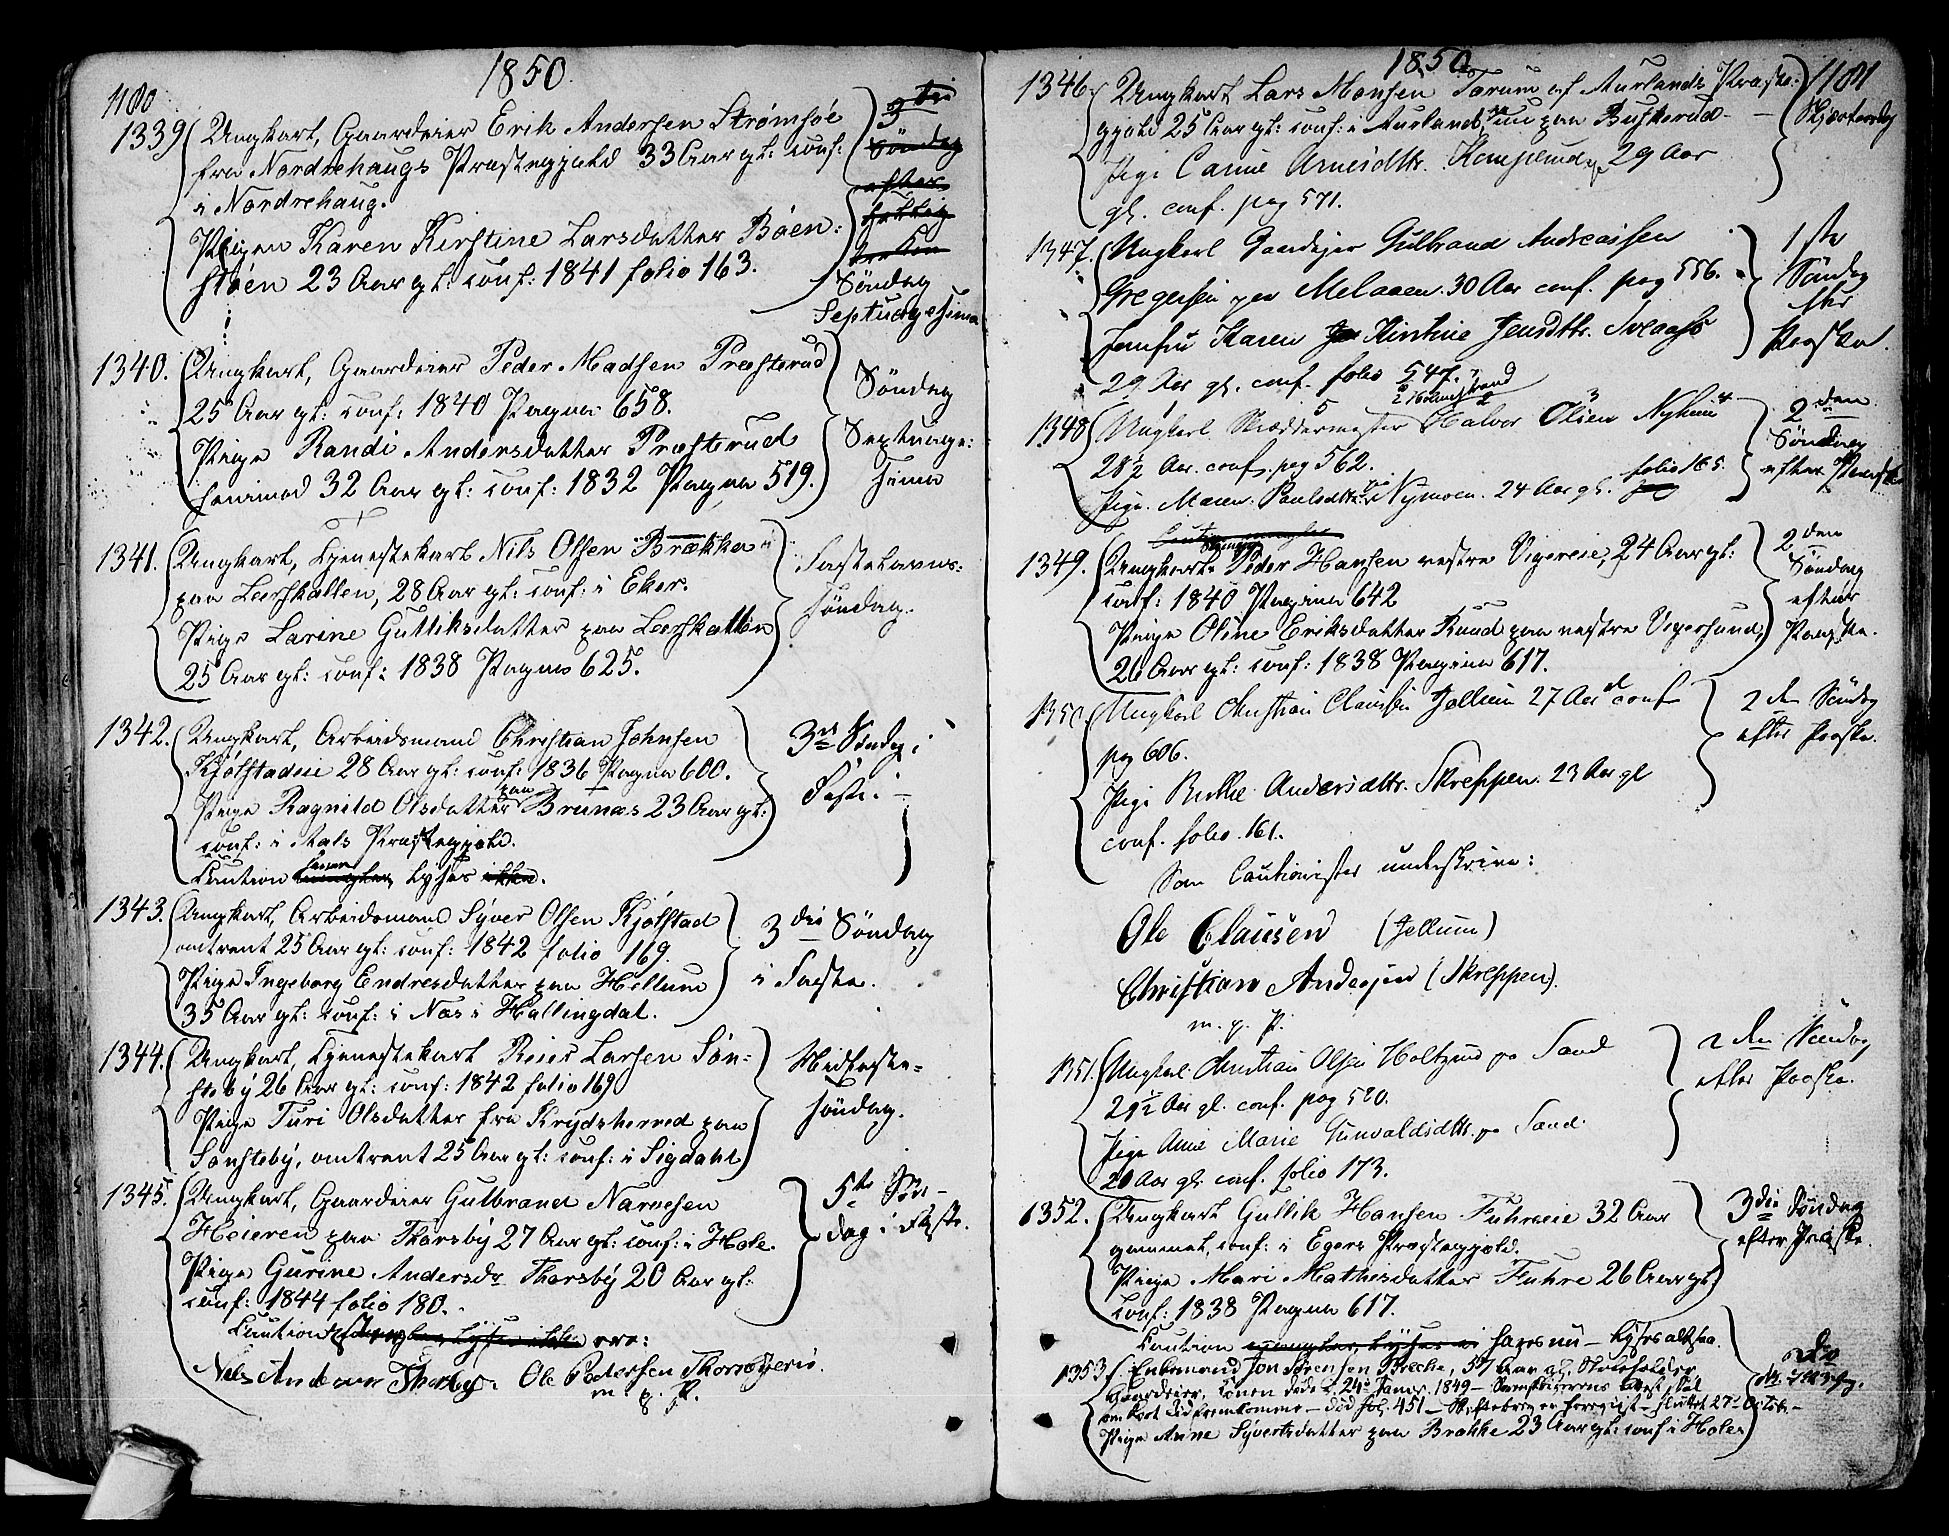 1850
1180
1339 Ungkarl, Gaardeier Erik Andersen Strømsøe
fra Nordrehaugs Præstegjæld 33 Aar gl: conf:
i Nordrehaug.
Pigen Karen Kirstine Larsdatter Bøen:
støen 23 Aar gl: conf: 1841 folio 163.
3die
Søndag
efter
hellig
tre Kon
Søndag
Septuagesima
1340. Ungkarl, Gaardeier Peder Madsen Præsterud
25 Aar gl: conf: 1840 Pagina 658.
Pige Randi Andersdatter Præsterud
32 Aar gl: conf: 1832 Pagina 519.
Søndag
Septuage:
sima
1341. Ungkarl, Tjenestekarl Nils Olsen Brækka
paa Leerskallen, 28 Aar gl: conf: i Eker.
Pige Larine Gulliksdatter paa Leerskallen
25 Aar gl: conf: 1838 Pagina 625.
Fastelavns:
søndag.
1342. Ungkarl, Arbeidsmand Christian Johnsen
Kjølstadeie 28 Aar gl: conf: 1836 Pagina 600.
Pige Ragnild Olsdatter paa Brunæs 23 Aar gl:
conf: i Aals Præstegjæld.
Caution mangler lyses ikke.
3die Søndag i
Faste.
1343. Ungkarl, Arbeidsmand Syver Olsen Kjølstad
omtrent 25 Aar gl: conf: 1842 folio 169.
Pige Ingeborg Endresdatter paa Hellum
35 Aar gl: conf: i Næs i Hallingdal.
3die Søndag
i Faste.
1344. Ungkarl, Tjenestekarl Reier Larsen Søn:
steby 26 Aar gl: conf: 1842 folio 169
Pige Turi Olsdatter fra Krydsherred paa
Sønsteby, omtrent 25 Aar gl: conf: i Sigdahl
Midfaste-
søndag.
1345. Ungkarl, Gaardeier Gulbrand Narvesen
Heieren paa Thorsby 27 Aar gl: conf: i Hole.
Pige Gurine Andersdr Thorsby 20 Aar gl:
conf: 1844 folio 180.
Caution mangler lyses ikke ere:
Nils Andersen Thorsby. Ole Pedersen
m. p. P.
5te Søn-
dag i Faste.
1850
1181
1346. Ungkarl Lars Monsen Tarum af Aurlands Præste:
gjæld 25 Aar gl: conf: i Aurland, nu paa Buskerud
Pige Carine Arnesdttr. 29 Aar
gl. conf. pag 571.
Skjærtorsdag
1347. Ungkarl Gaardejer Gulbrand Andreassen
Gregersen paa Melaaen. 30 Aar conf. pag 556.
Jomfru Karen Kirstine Jensdttr. Svelaas
29 Aar gl. conf. folio 547.
1ste
Søndag
efter
Paaske.
1348 Ungkarl Skræddermester Halvor Olsen Nyhuus
28½ Aar. conf. pag 562.
Pige Maren Paulsdttr. Nymoen. 24 Aar gl. folio 165.
2den
Søndag
efter Paaske
1349. Ungkarl Peder Hansen vestre Vigereie, 24 Aar gl:
conf: 1840 Pagina 642
Pige Oline Eriksdatter Ruud paa vestre Vigersund,
26 Aar gl: conf: 1838 Pagina 617.
2den
Søndag
efter
Paaske.
1350. Ungkarl Christian Claussen Jellum 27 Aar conf
pag 606.
Pige Berthe Andersdttr. Skreppen. 23 Aar gl
conf. folio 161.
Som Cautionister underskrive:
Ole Clausen (Jellum)
Christian Andersen (Skreppen).
m. p. P.
2den Søndag
efter Paaske.
1351. Ungkarl Christian Olsen paa Sand
29½ Aar gl. conf. pag 520.
Pige Anne Marie Gunvaldsdttr. paa Sand
20 Aar gl. conf. folio 173.
2den Søndag
efter Paaske.
1352. Ungkarl Gullik Hansen Fuhreeie 32 Aar
gammel, conf: i Egers Præstegjæld.
Pige Mari Mathisdatter Fuhre 26 Aar gl:
conf: 1838 Pagina 617.
Caution mangler, lyses ei haves nu - lyses altsaa.
3die Søndag
efter Paaske.
1353 Enkemand Jon Sørensen Bræcke, 57 Aar gl,
Gaardeier, Konen døde d. 24de Januar 1849 -
død fol. 451 - 27de Octob. -
Pige Anne Syvertsdatter paa Brække 23 Aar gl: conf i Hole